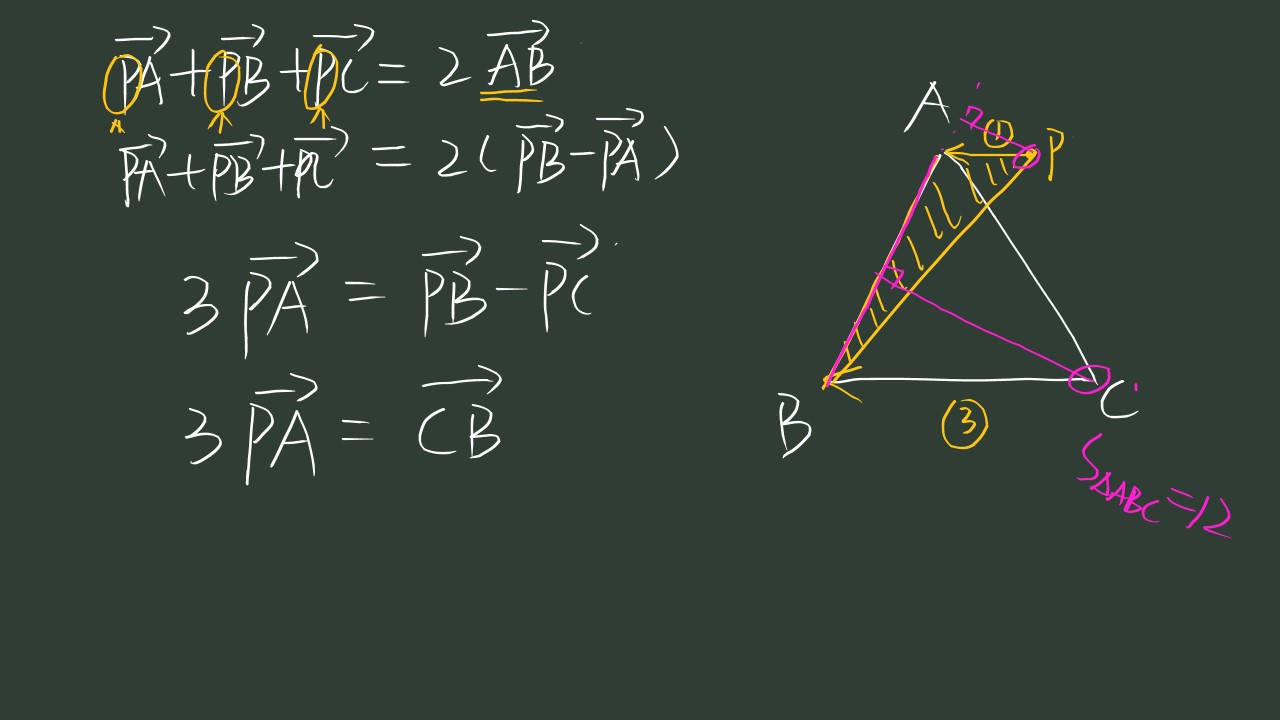 $\overrightarrow{PA}+\overrightarrow{PB}+\overrightarrow{PC}=2\overrightarrow{AB}$
$\overrightarrow{PA}+\overrightarrow{PB}+\overrightarrow{PC}=2(\overrightarrow{PB}-\overrightarrow{PA})$
$3\overrightarrow{PA}=\overrightarrow{PB}-\overrightarrow{PC}$
$3\overrightarrow{PA}=\overrightarrow{CB}$
A
①
P
B
③
C
$S_{\triangle ABC}=12$